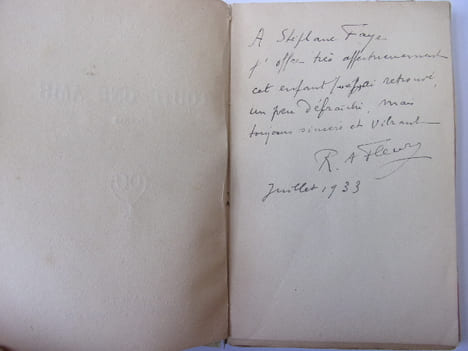 A Stéphane Faye
j'offre très affectueusement
cet enfant retrouvé,
un peu défraichi, mais
toujours sincère et vibrant
R. A Fleury
Juillet 1933